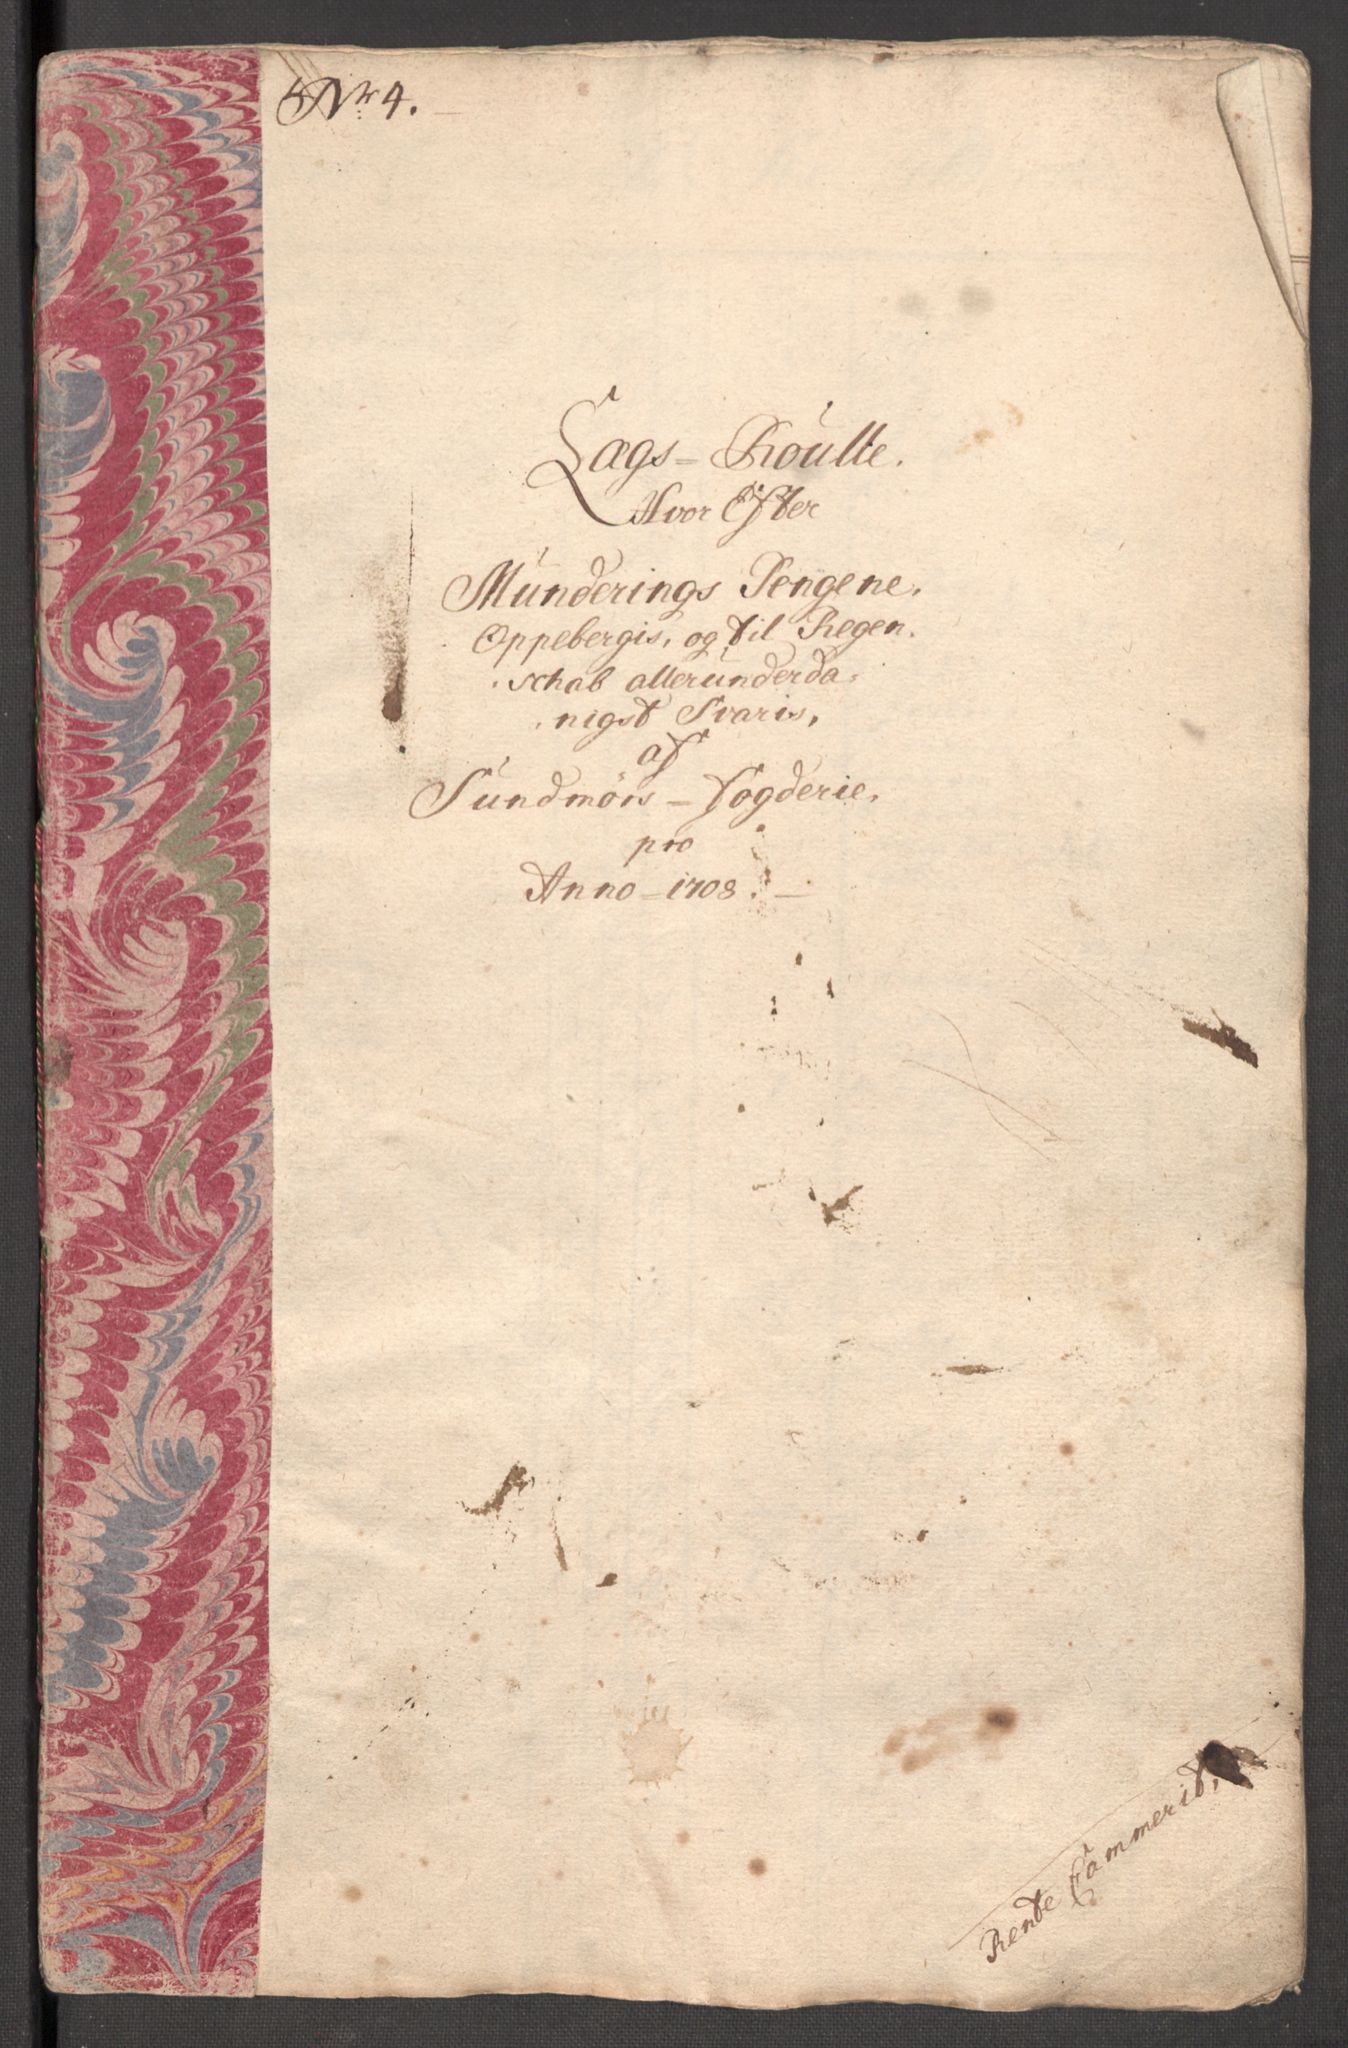 No 4.
Lægs-Roulle.
Hvor Efter
Munderings Pengene,
Oppebergis, og til Regen-
schab allerunderda-
nigst Svaris,
af
Sundmörs-Fogderie,
pro
Anno-1708.
Rente Cammerit,